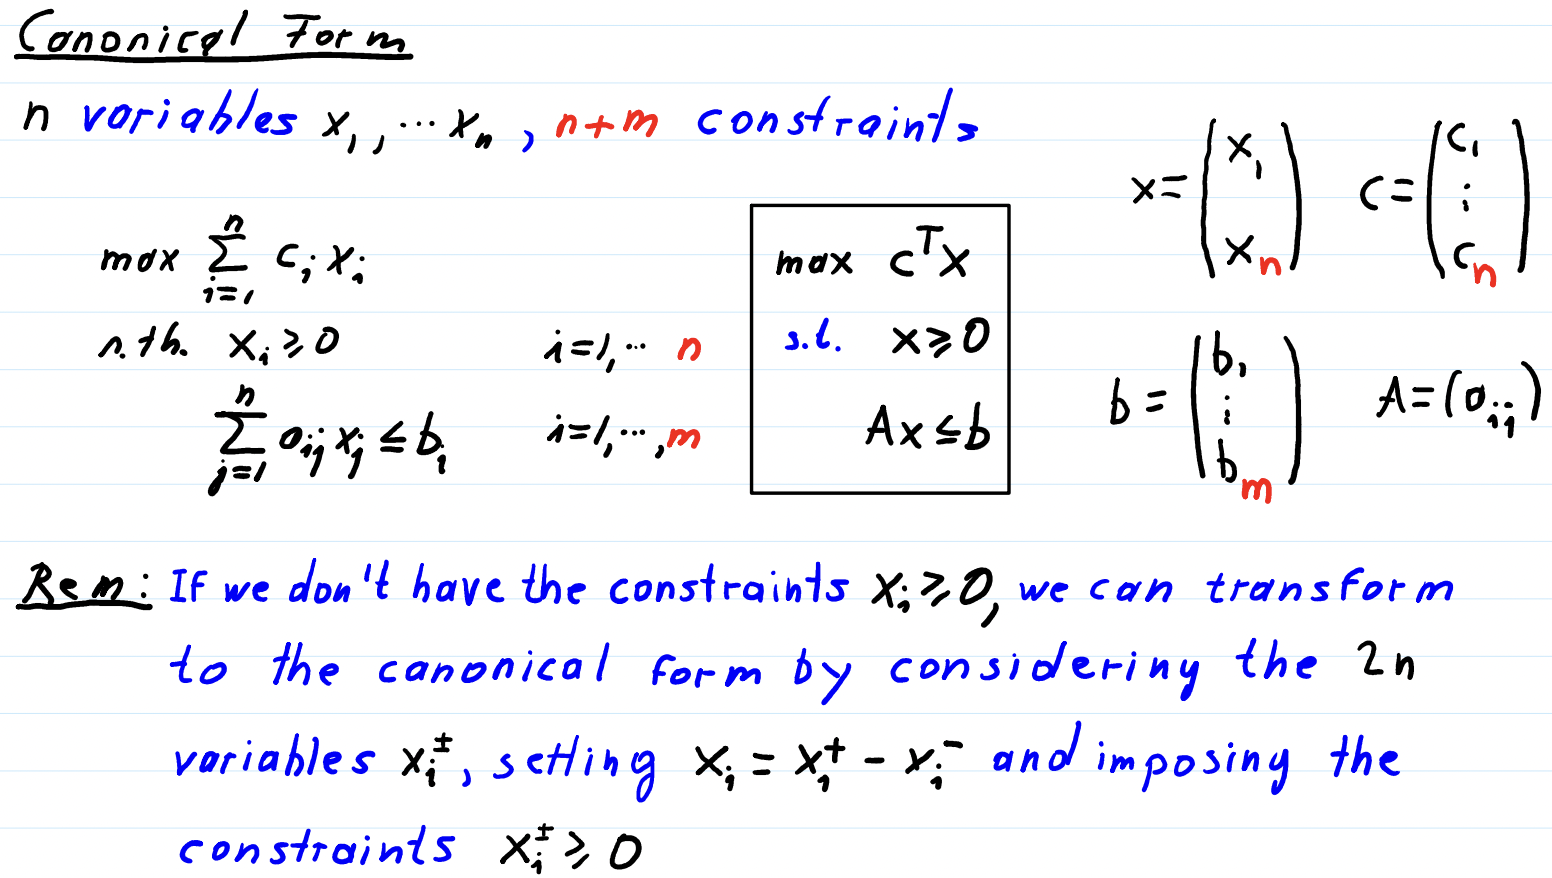 Canonical Form
n variables x₁, ⋯ xₙ, n+m constraints
max ∑ᵢ₌₁ⁿ cᵢ xᵢ
s.th. xᵢ ≥ 0 i=1,⋯ n
∑ⱼ₌₁ⁿ aᵢⱼ xⱼ ≤ bᵢ i=1,⋯,m
max cᵀx
s.t. x ≥ 0
Ax ≤ b
x = (x₁ xₙ) c = (c₁ ⋮ cₙ)
b = (b₁ ⋮ bₘ) A = (aᵢⱼ)
Rem: If we don't have the constraints xᵢ ≥ 0, we can transform
to the canonical form by considering the 2n
variables xᵢ^±, setting xᵢ = xᵢ⁺ - xᵢ⁻ and imposing the
constraints xᵢ^± ≥ 0